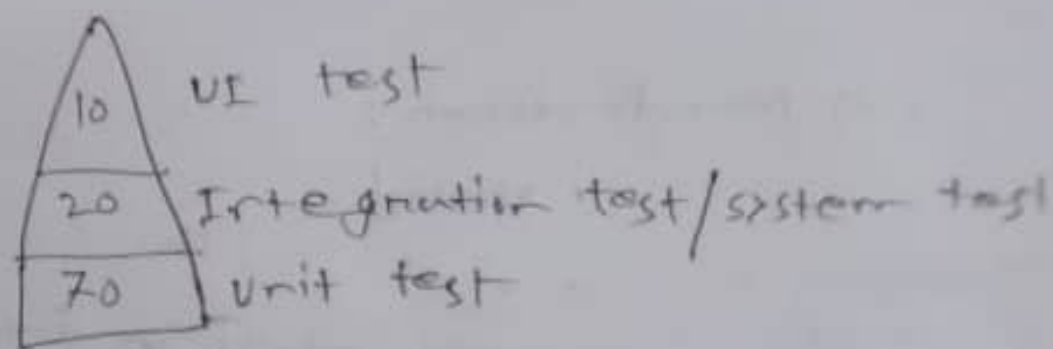 10 UI test
20 Integration test/system test
70 Unit test